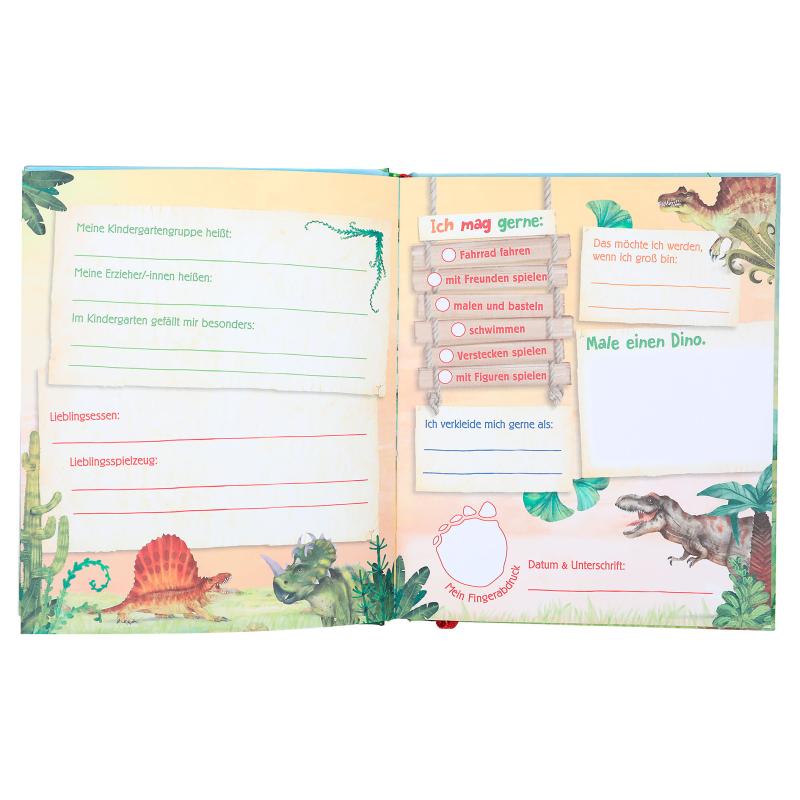 Meine Kindergartengruppe heißt:
Meine Erzieher/-innen heißen:
Im Kindergarten gefällt mir besonders:
Lieblingsessen:
Lieblingsspielzeug:
Ich mag gerne:
Fahrrad fahren
mit Freunden spielen
malen und basteln
schwimmen
Verstecken spielen
mit Figuren spielen
Ich verkleide mich gerne als:
Das möchte ich werden,
wenn ich groß bin:
Male einen Dino.
Mein Fingerabdruck
Datum & Unterschrift: